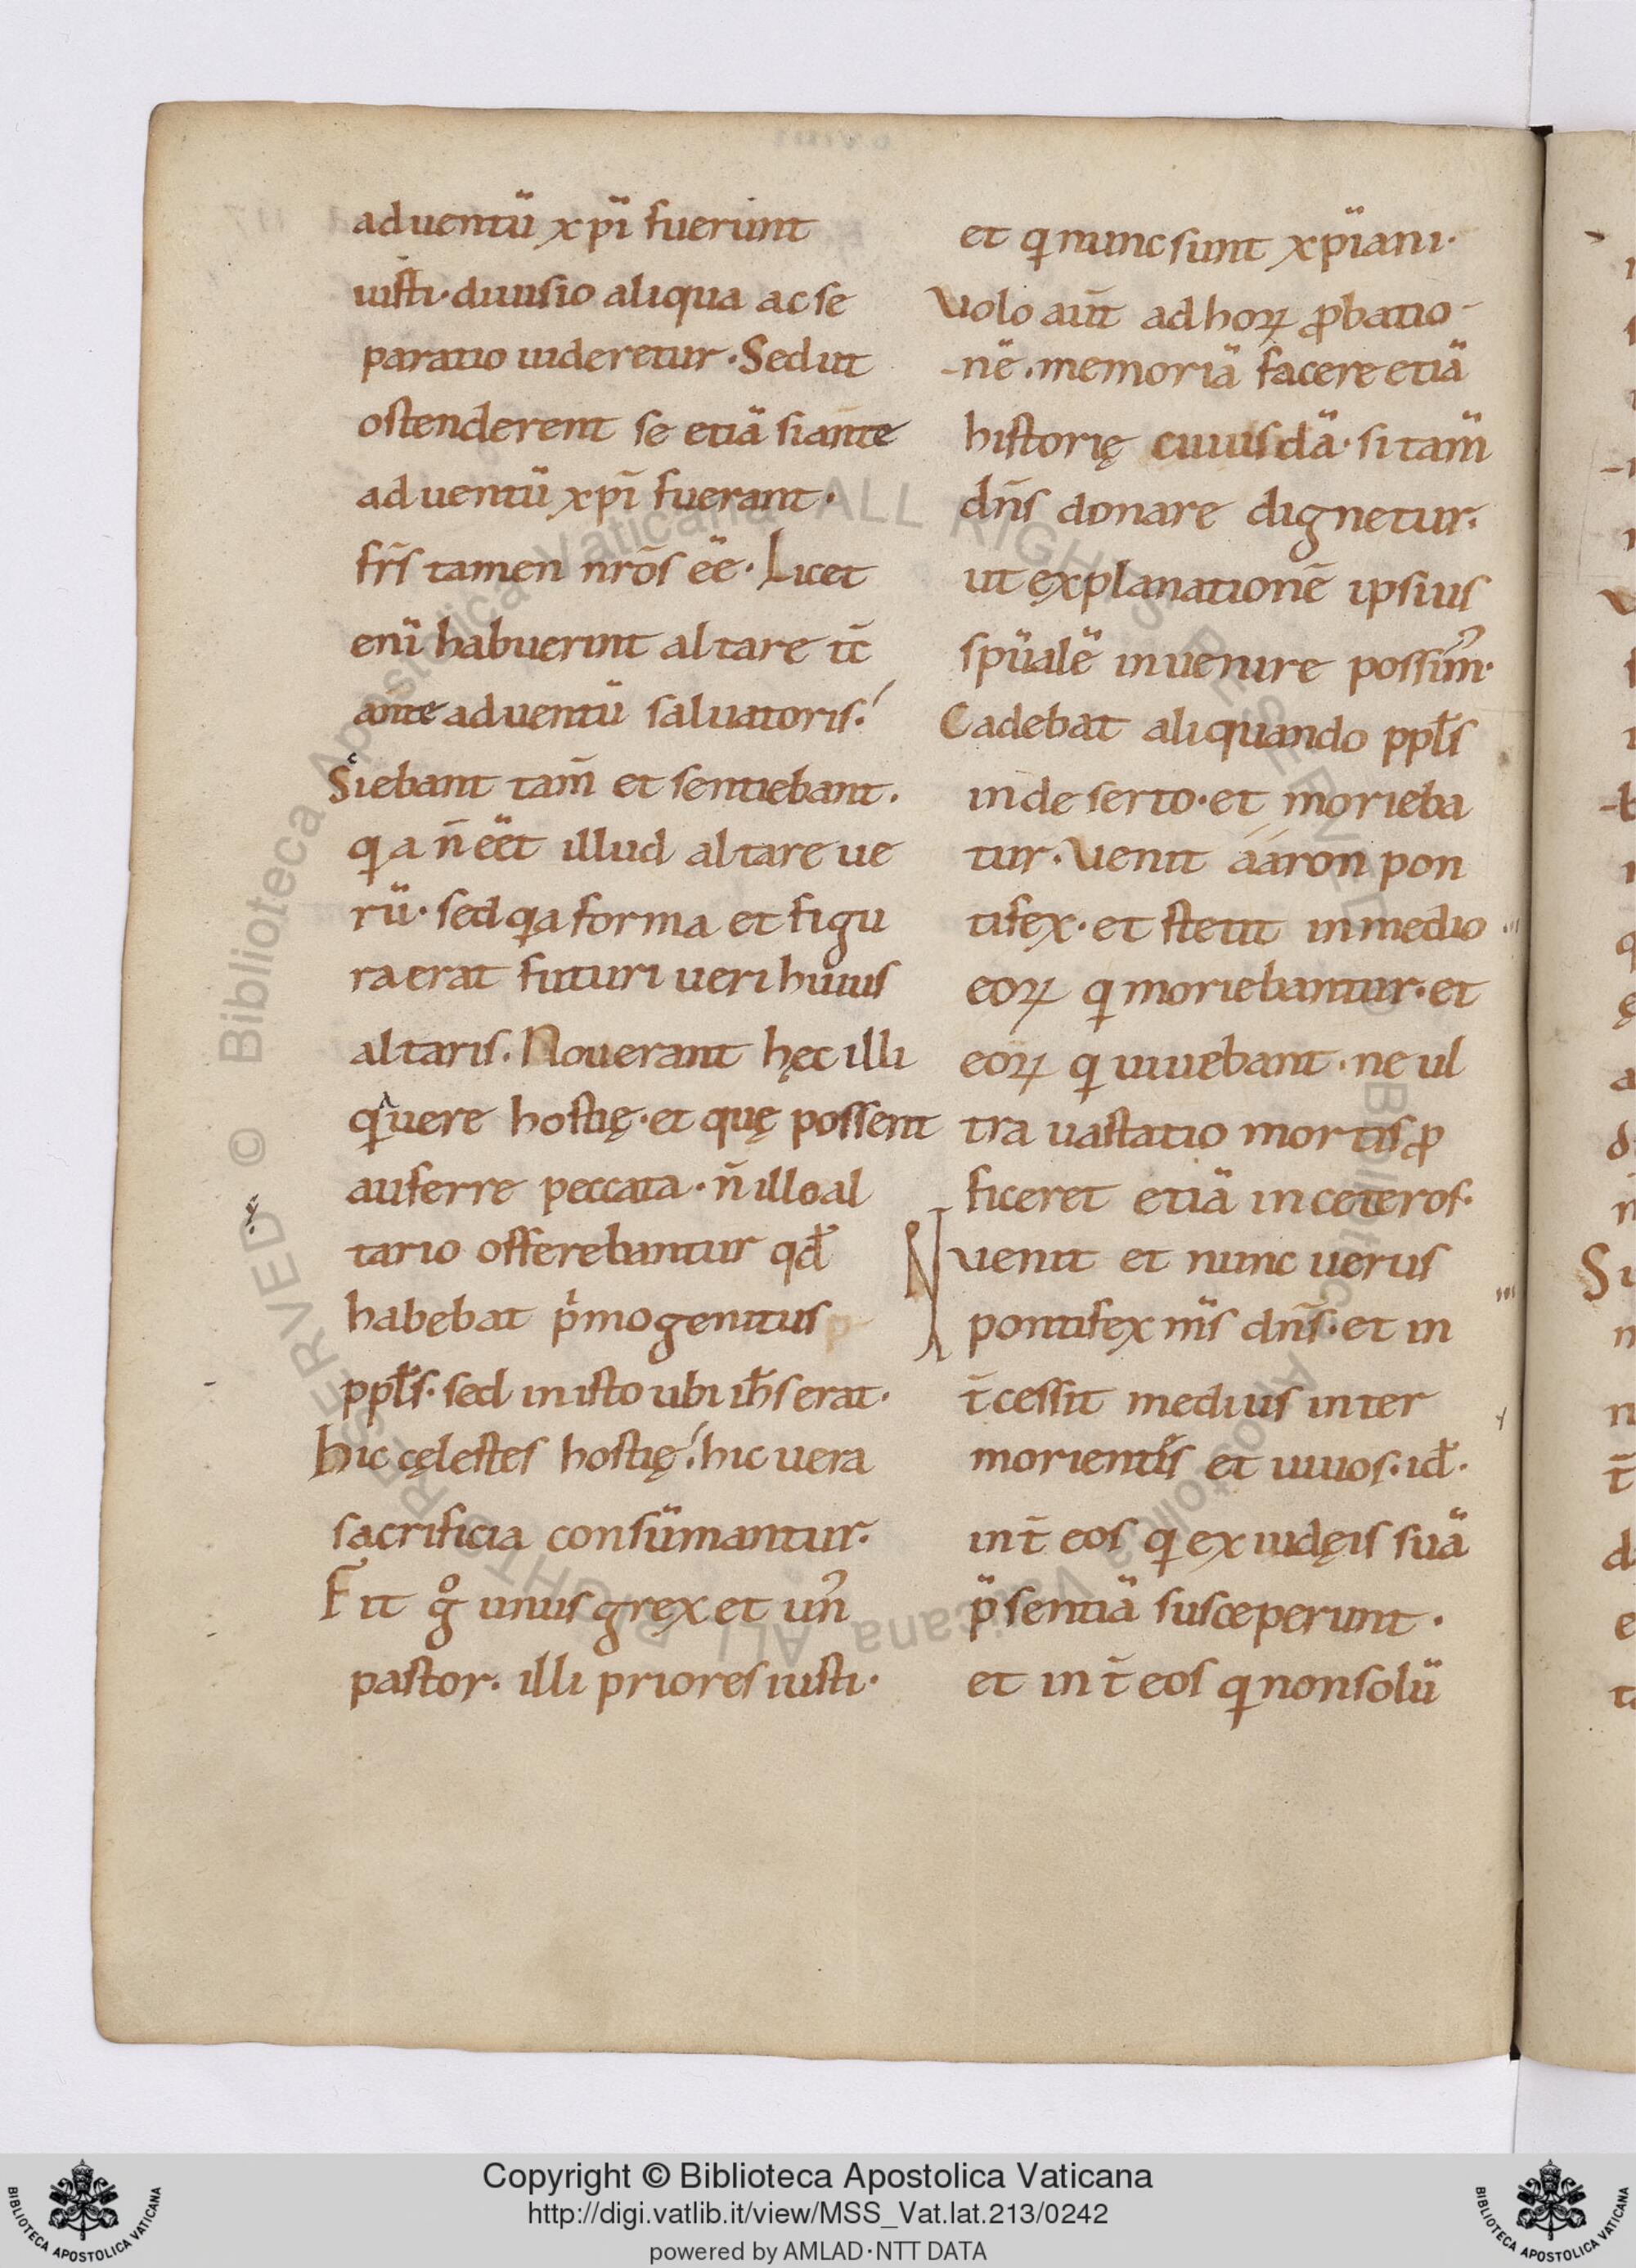 aduentū xp̄i fuerunt
iusti· diuisio aliqua ac se
paratio uideretur. Sed ut
ostenderent se etiā si ante
aduentū xp̄i fuerant·
fr̄s tamen nr̄os eē. Licet
eni̅ habuerint altare tc̄
ante aduentū saluatoris.
Sciebant tam̄ et sentiebant.
qa n̄ eēt illud altare ue
rū· sed qa forma et figu
ra erat futuri ueri huius
altaris. Nouerant hęc illi
qͣ uere hostię· et quę possent
auferre peccata· n̄ illo al
tario offerebantur qđ
habebat pͥmogenitus
ppl̄s· sed in isto ubi ih̄s erat·
hic cęlestes hostię. hic uera
sacrificia consūmantur.
Fit gͦ unus grex et un̄
pastor. illi priores iusti·
et q nunc sunt xp̄iani·
Volo aut̄ ad hoꝝ ꝓbatio-
-nē. memoriā facere etiā
historię cuiusdā· si tam̄
dn̄s donare dignetur.
ut explanationē ipsius
sp̄ualē inuenire possim᾽.
Cadebat aliquando ppl̄s
in deserto· et morieba
tur. Venit ááron pon
tifex· et stetit in medio
eoꝝ q moriebantur· et
eoꝝ q uiuebant· ne ul
tra uastatio mortis ꝓ
ficeret etiā in ceteros·
Venit et nunc uerus
pontifex nr̄s dn̄s· et in
t̄cessit medius inter
morientes et uiuos· id̄·
int̄ eos q ex iudęis suā
p̄sentiā susceperunt·
et int̄ eos q non solū
Copyright © Biblioteca Apostolica Vaticana
http://digi.vatlib.it/view/MSS_Vat.lat.213/0242
powered by AMLAD·NTT DATA
BIBLIOTECA APOSTOLICA VATICANA
BIBLIOTECA APOSTOLICA VATICANA